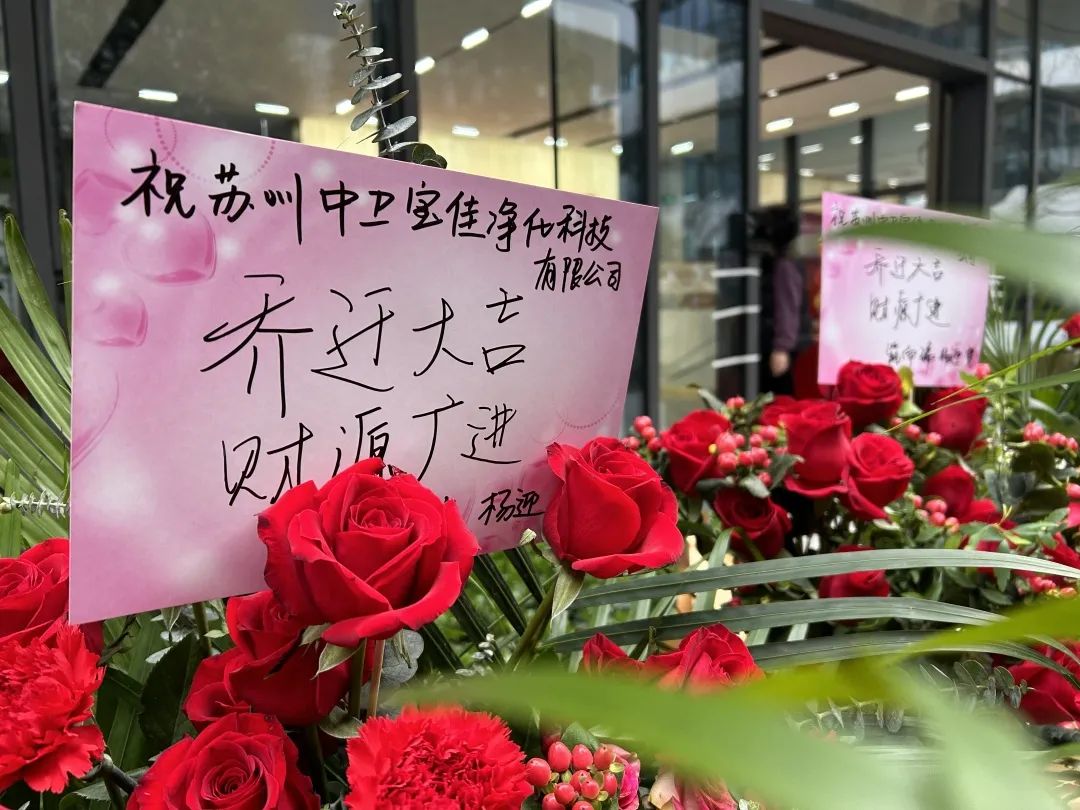 祝苏州中卫宝佳净化科技
有限公司
乔迁大吉
财源广进
杨迎
乔迁大吉
财源广进